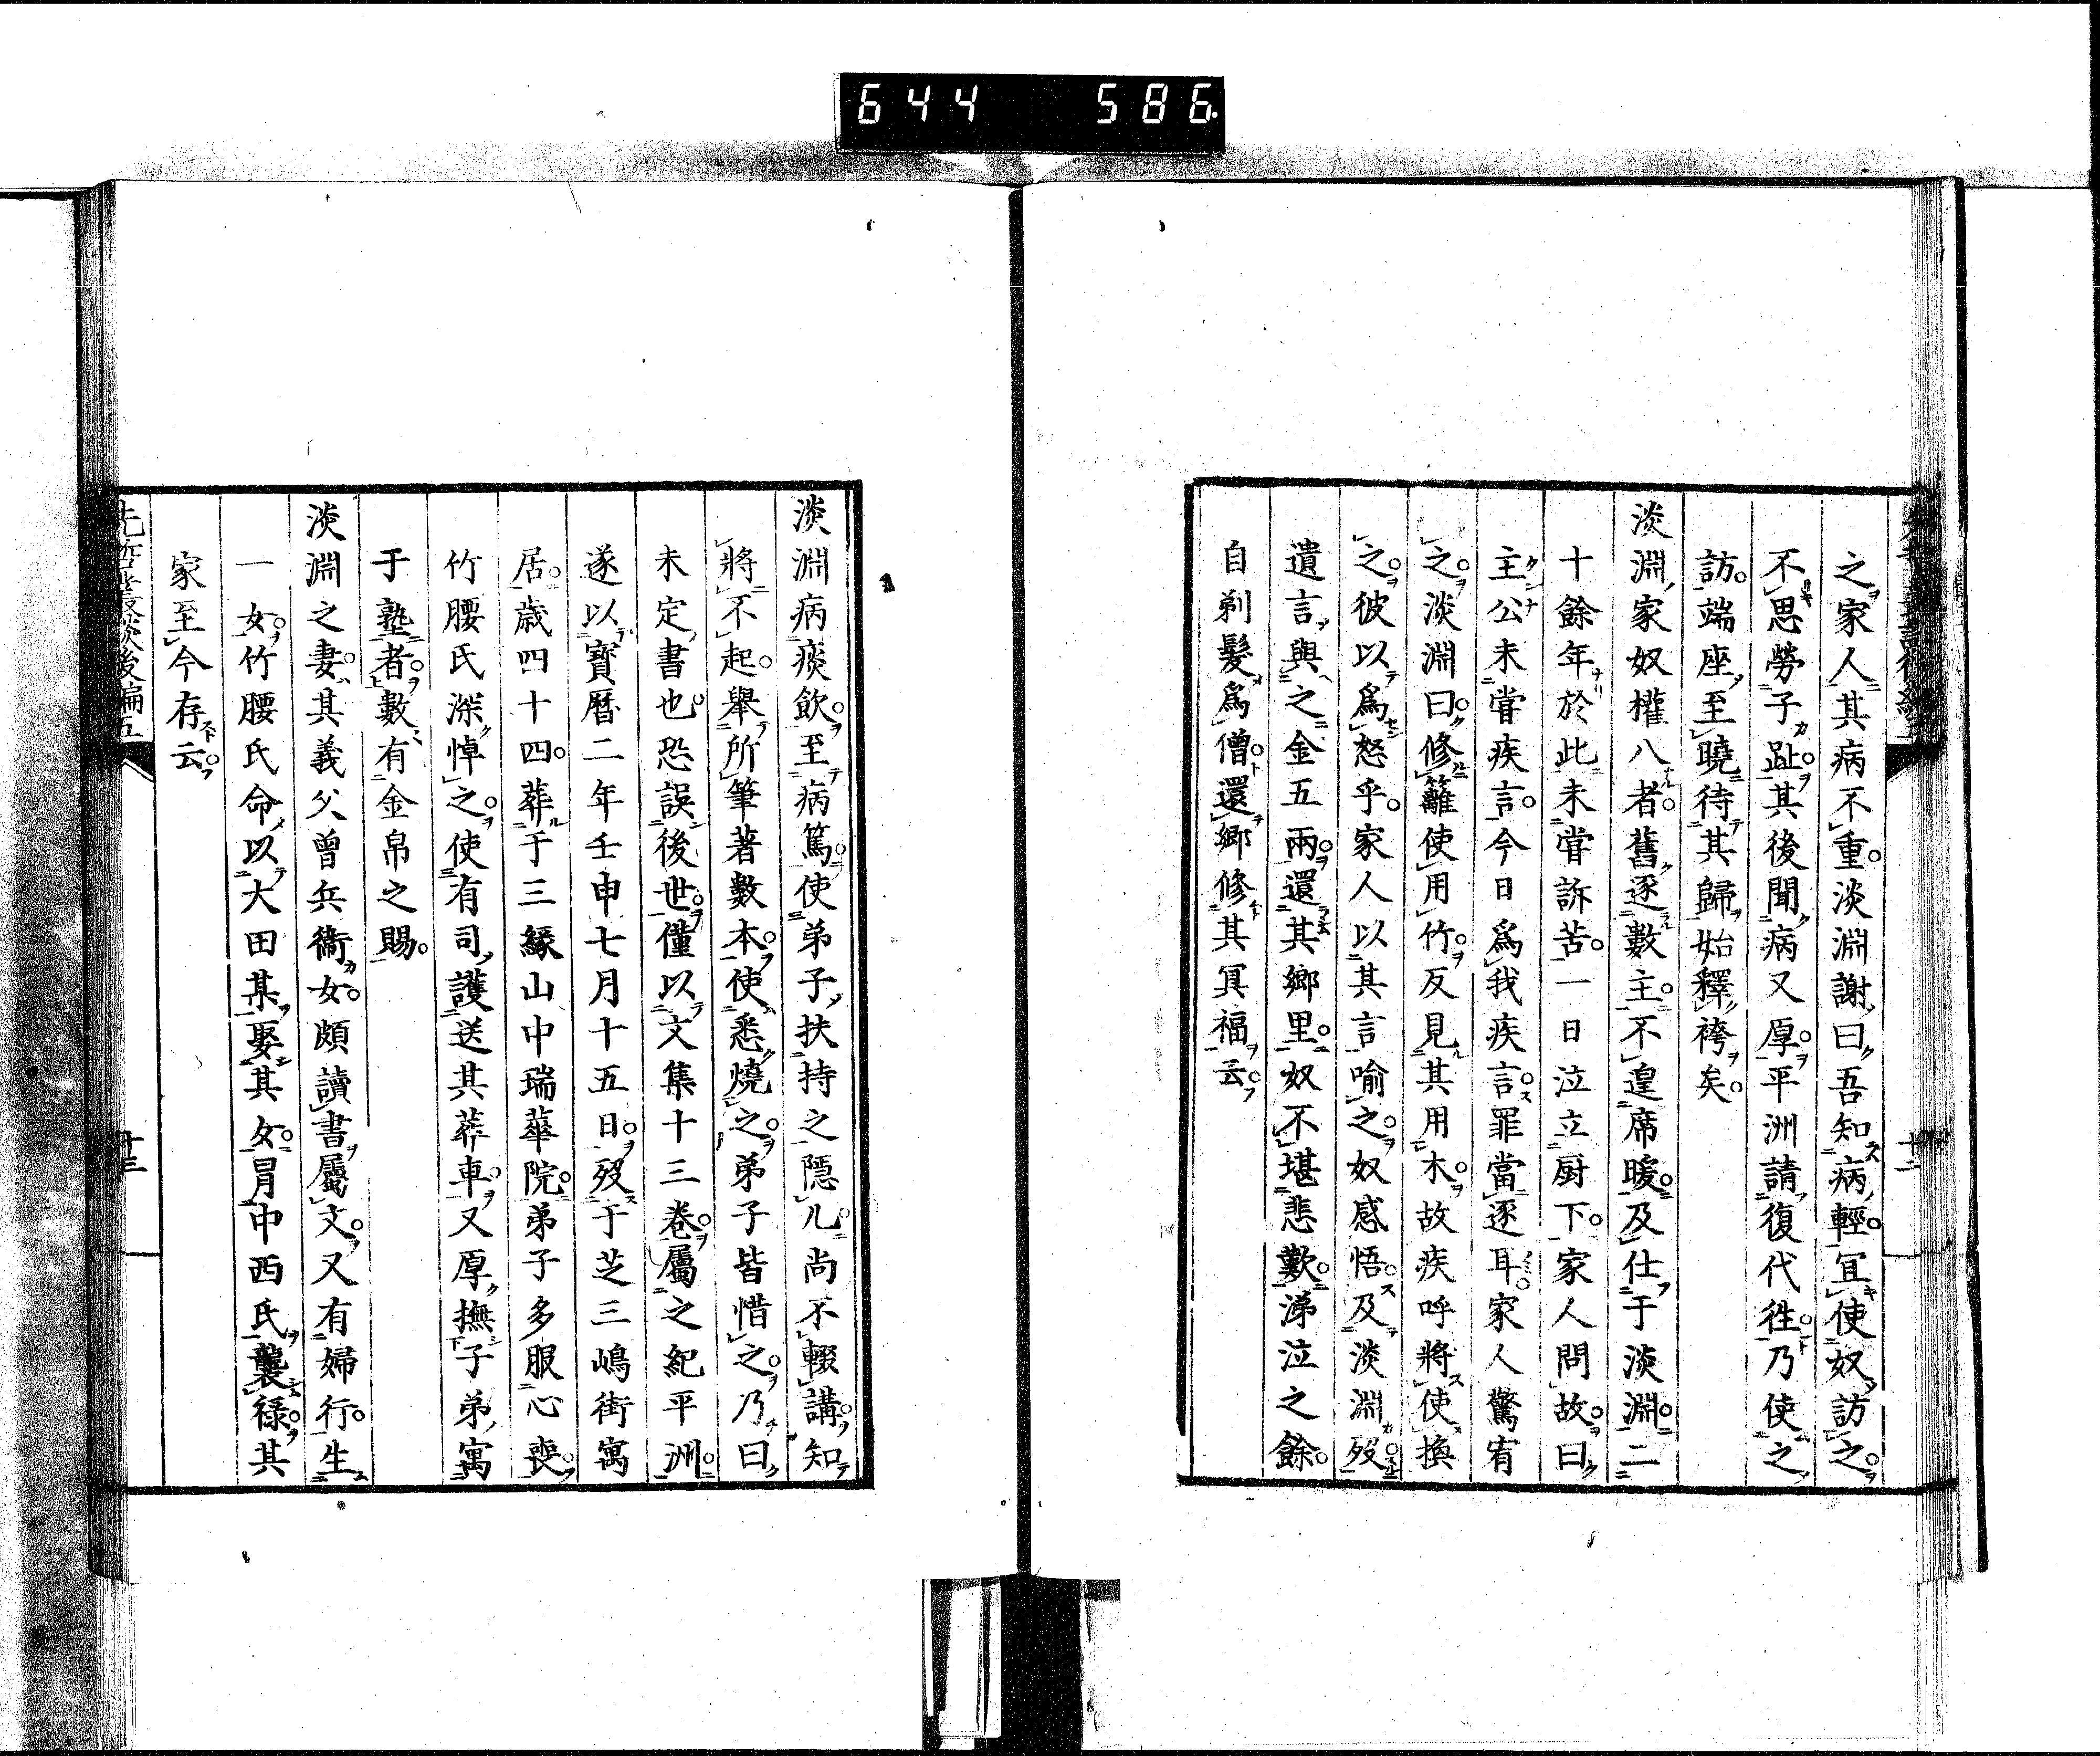 644 586
之家人其病不重。淡淵謝曰吾知病輕。冝使奴訪之。
不思勞子趾。其後聞病又厚。平洲請復代徃。乃使之
訪。端座至曉待其歸始釋袴矣。
淡淵家奴權八者。舊逐數主。不遑席暖。及仕于淡淵。二
十餘年於此未甞訴苦。一日泣立厨下。家人問故。曰
主公未甞疾言。今日爲我疾言。罪當逐耳。家人驚宥
之。淡淵曰。修籬使用竹。反見其用木。故疾呼將使換
之。彼以爲怒乎。家人以其言喻之。奴感悟。及淡淵歿
遺言與之金五兩。還其鄉里。奴不堪悲歎。涕泣之餘。
自剃髮爲僧。還鄉修其冥福云。
淡淵病痰飲。至病篤。使弟子扶持之隱几。尚不輟講。知
將不起。舉所筆著數本。使悉燒之。弟子皆惜之。乃曰
未定書也。恐誤後世。僅以文集十三卷。屬之紀平洲。
遂以寶曆二年壬申七月十五日。歿于芝三嶋街寓
居。歲四十四。葬于三緣山中瑞華院。弟子多服心喪。
竹腰氏深悼之。使有司護送其葬車。又厚撫子弟寓
于塾者。數有金帛之賜。
淡淵之妻。其義父曾兵衞女。頗讀書屬文。又有婦行。生
一女。竹腰氏命以大田某娶其女。冐中西氏襲祿。其
家至今存云。
先哲叢談後編五
十三